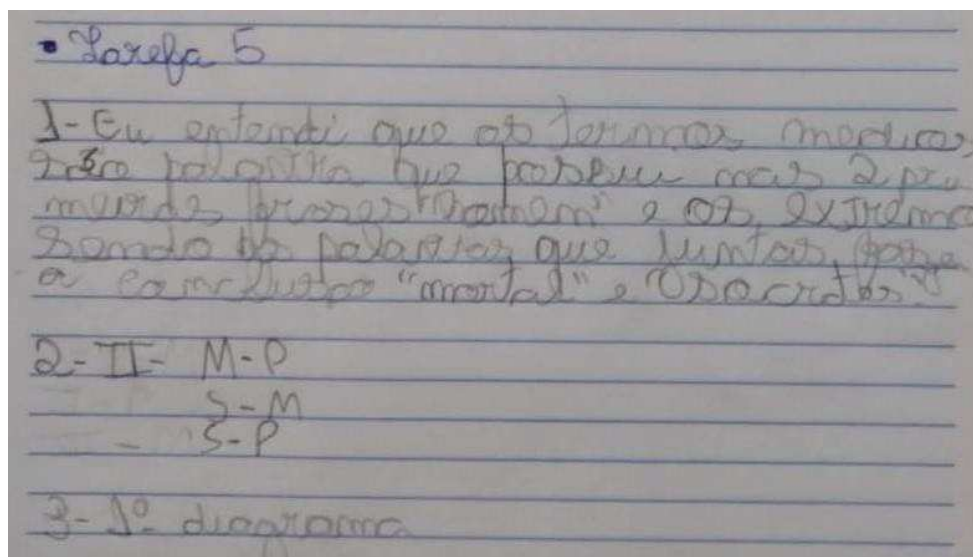 • Tarefa 5
1- Eu entendi que os termos medios
são palavra que possui nas 2 pri
meiras frases "homem" e os extremo
sendo as palavras que juntas, faze
a conclusão "mortal" e "Socrates"
2- II- M-P
S-M
- S-P
3- 1º diagrama